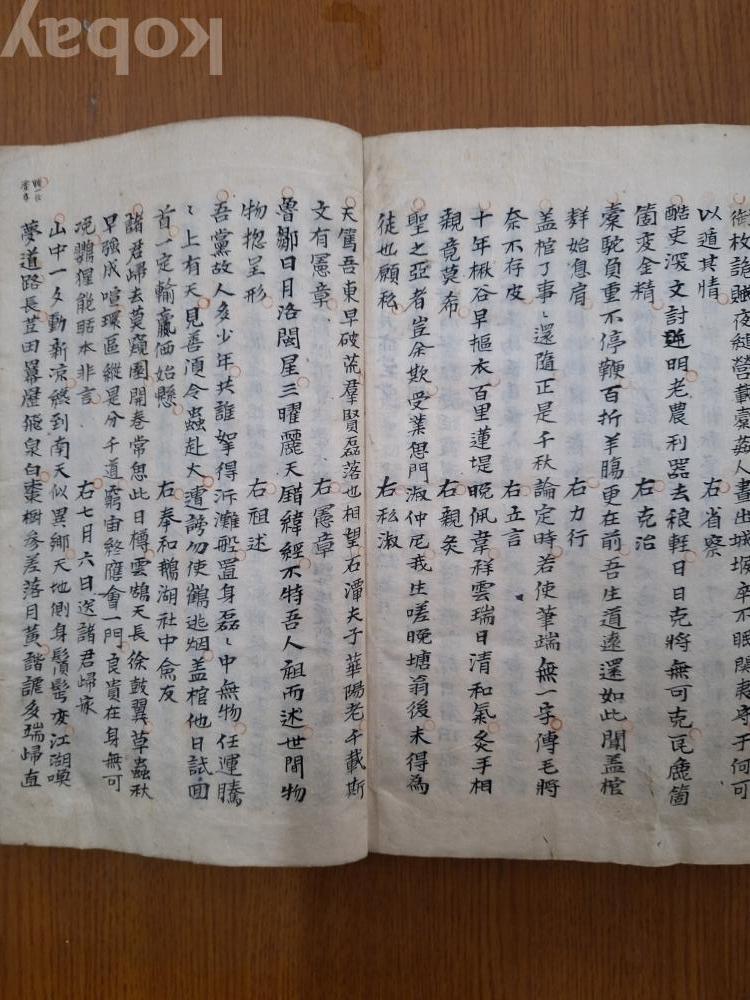 kobay
銜枚詭賊夜縋營載藁姦人晝出城堠卒不眠関吏守于何可
以遁其情　右省察
酷吏深文討 明老農利器去稂輕日日克將無可克瓦鹿箇
箇变金精　右克治
橐駝負重不停鞭百折羊膓更在前吾生道遠還如此聞盖棺
時始息肩　右力行
盖棺了事〻還隨正是千秋論定時若使筆端無一字傳毛將
奈不存皮　右立言
十年楸谷早摳衣百里蓮堤晩佩韋祥雲瑞日清和氣炙手相
親竟莫希　右親炙
聖之亞者豈余欺受業想門淑仲尼我生嗟晩塘翁後未得為
徒也願私　右私淑
天篤吾東早破荒羣賢磊落也相望右潭夫子華陽老千載斯
文有憲章　右憲章
魯鄒日月洛閩星三曜麗天錯緯經不特吾人祖而述世間物
物揔呈形　右祖述
吾黨故人多少年共誰拏得泝灘船置身磊〻中無物任運騰
〻上有天見善須令蟲赴火遭謗勿使鶴逃烟盖棺他日試回
首一定輸贏価始懸　右奉和鵝湖社中僉友
諸君歸去莫窺園開卷常思此日樽雲鵠天長徐鼓翼草蟲秋
早強成喧環區縱是分千道窮宙終應會一門良貴在身無可
浼鸚猩能語本非言　右七月六日送諸君歸家
山中一夕動新凉纔到南天似異鄉天地側身鬢髩变江湖嗅
夢道路長荳田羃歷飛泉白棗樹參差落月黃諧謔多端歸直